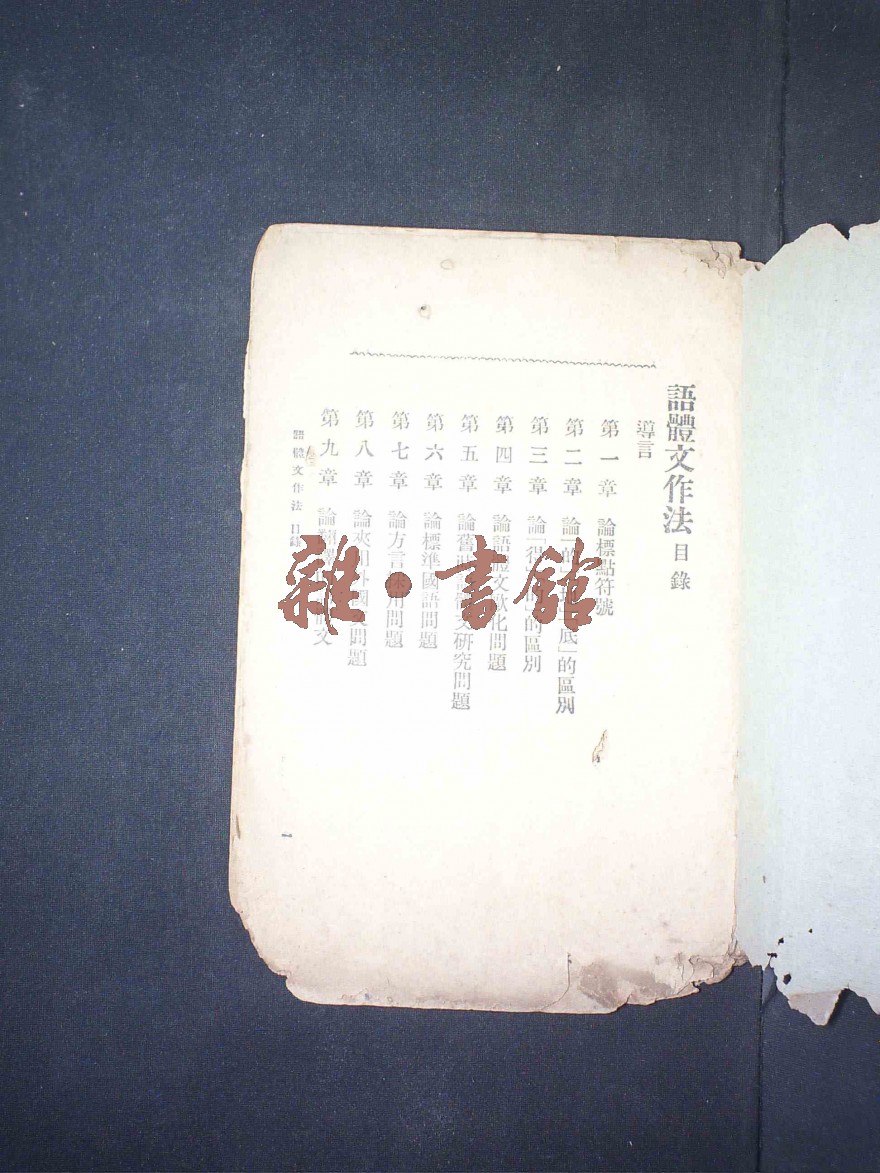 語體文作法 目錄
導言
第一章 論標點符號
第二章 論「的」底」的區別
第三章 論「得」的區別
第四章 論語體文歐化問題
第五章 論舊體文研究問題
第六章 論標準國語問題
第七章 論方言採用問題
第八章 論夾用外國文問題
第九章 論翻譯文
語體文作法 目錄
一
雜·書館